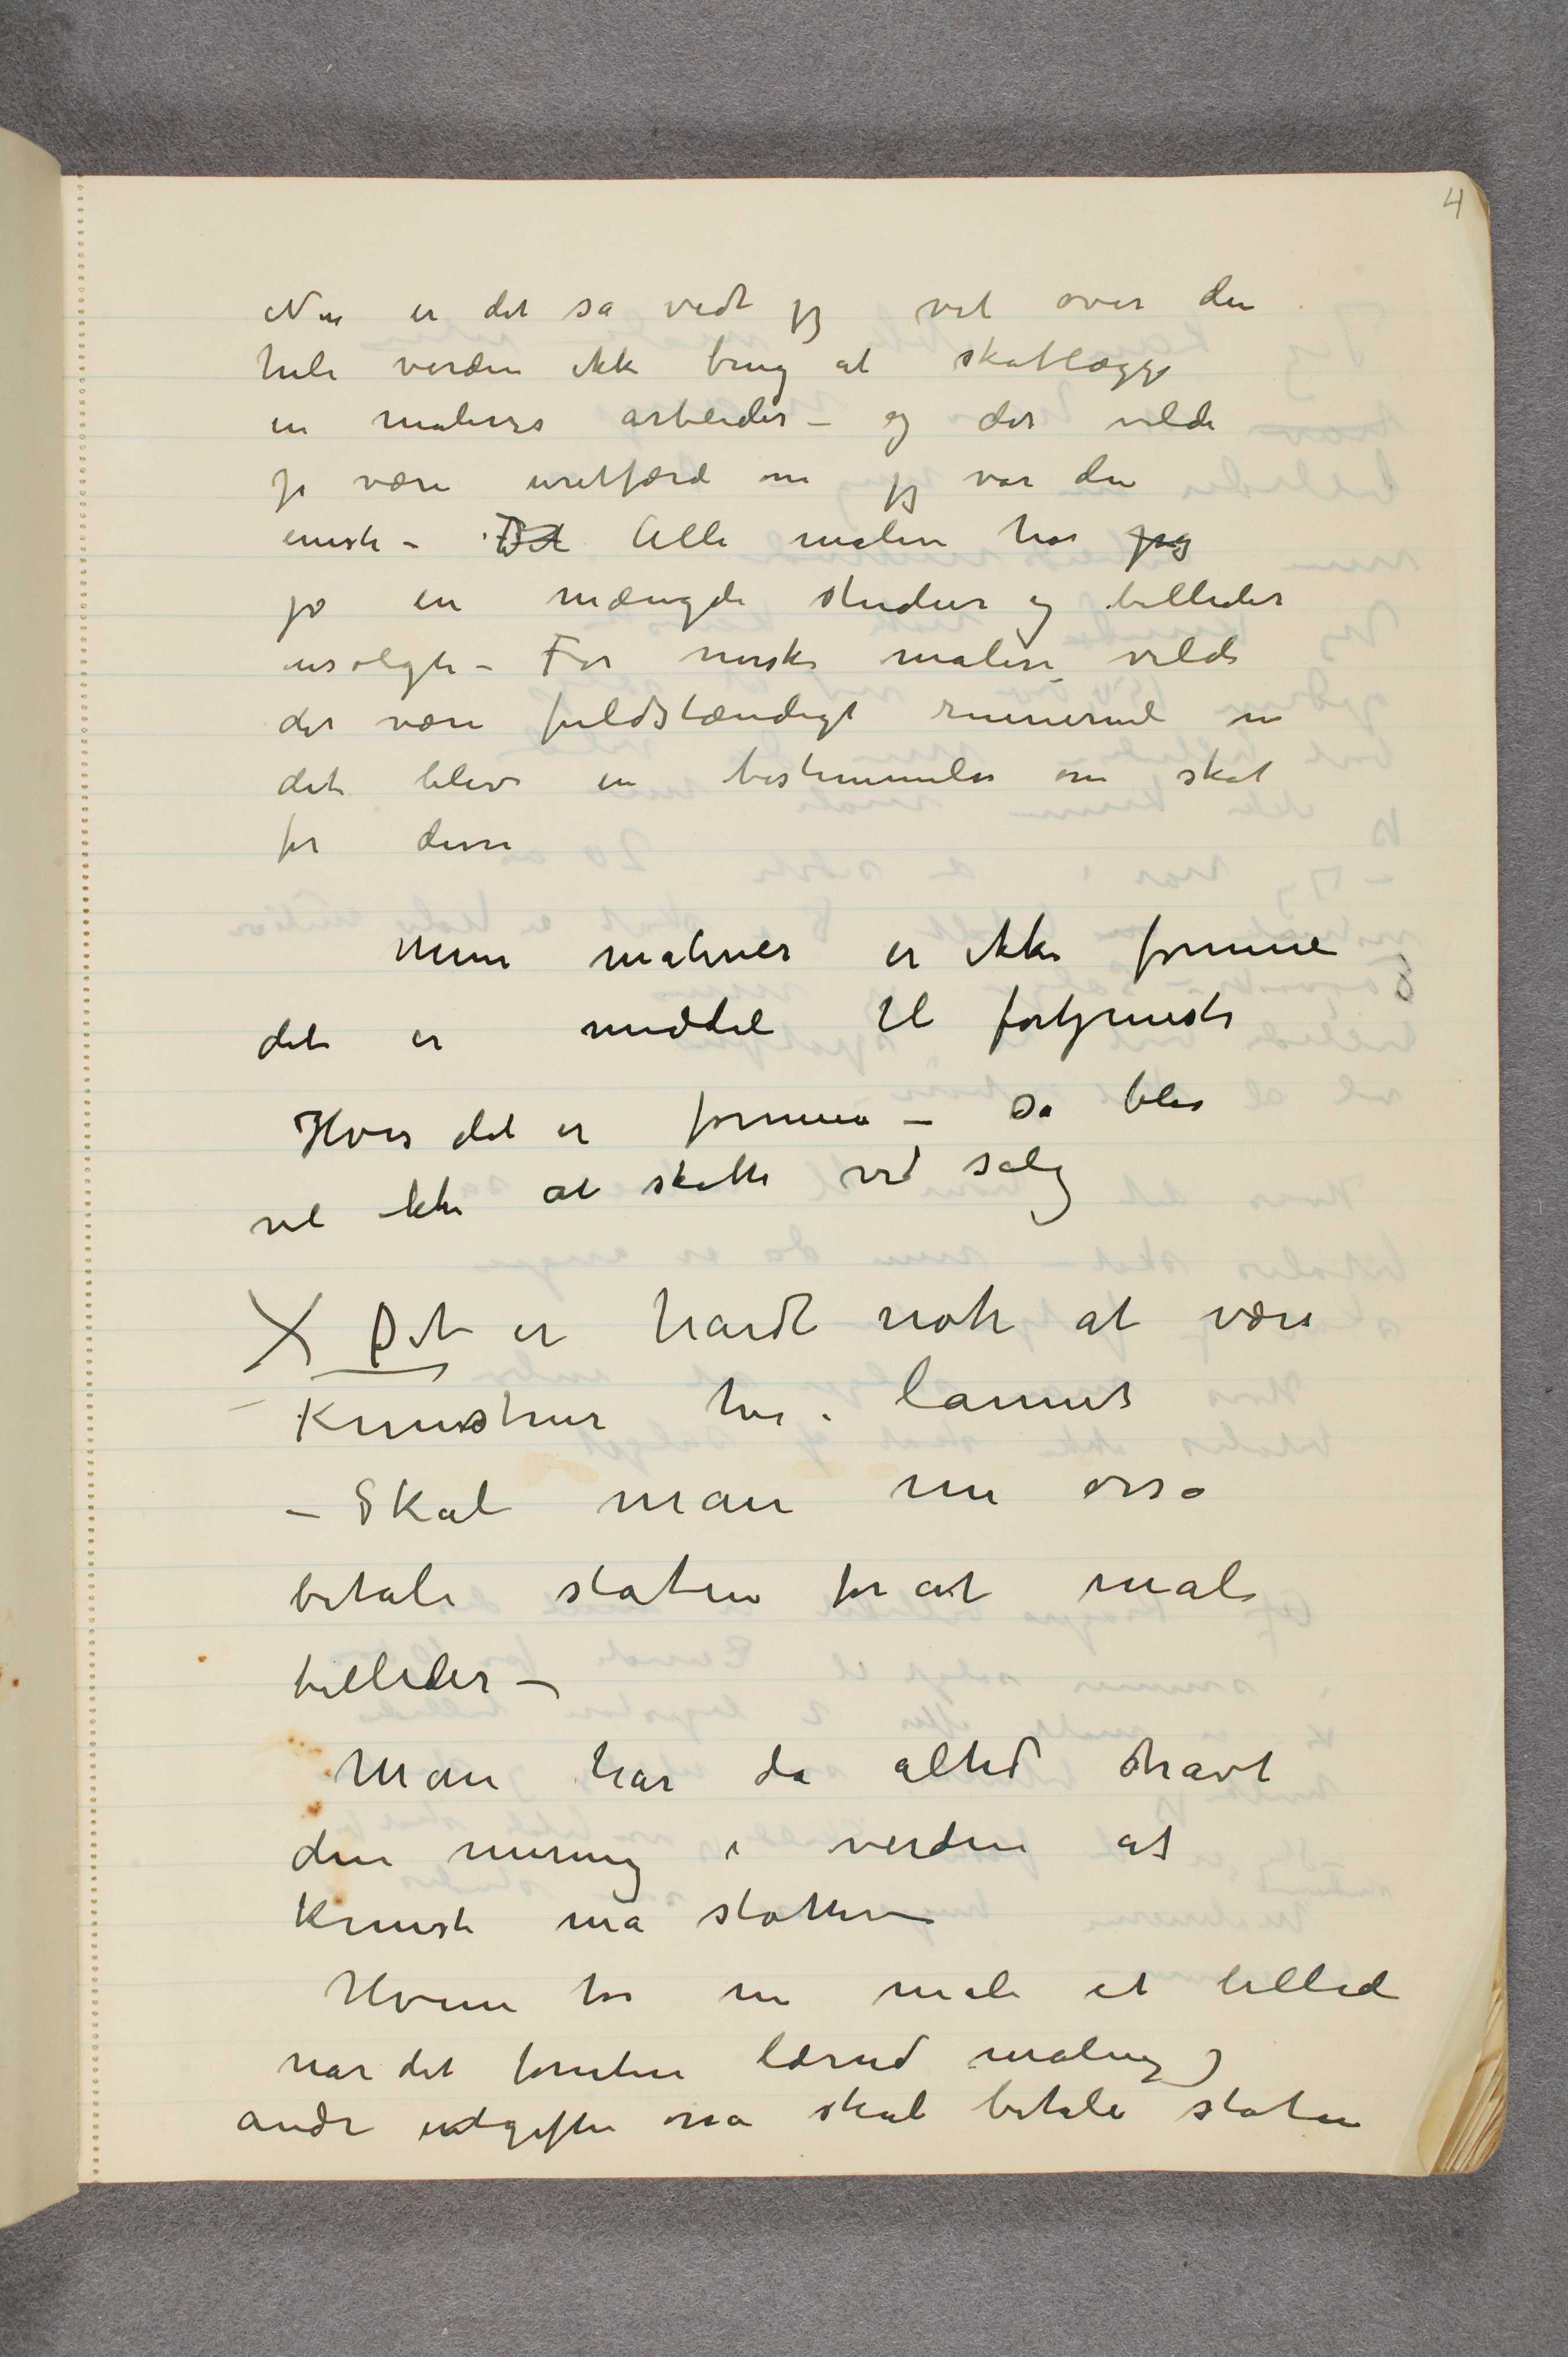 4
Nu er det så vidt jeg vet over den
hele verden ikke brug at skatlægge
en malers arbeider – og det vilde
jo være uretfærd om jeg var den
eneste – Det Alle malere har jeg
jo en mængde studier og billeder
usolgte – For norske malere vilde
det være fuldstændigt ruinernde om
det blev en bestemmelse om skat
for disse
Mine malerier er ikke formue
det er middel til fortjeneste
Hvis det er formue – så blir
vel ikke at skatte ved salg
X Det er hardt nok at være
Kunstner her i lannet
– Skal man nu osså
betale staten for at male
billeder –
Man har da altid havt
den mening i verden at
kunst må støttes –
Hvem tør nu male et billede
når det foruten lærred maling og
andre utgifter osså skal betale staten